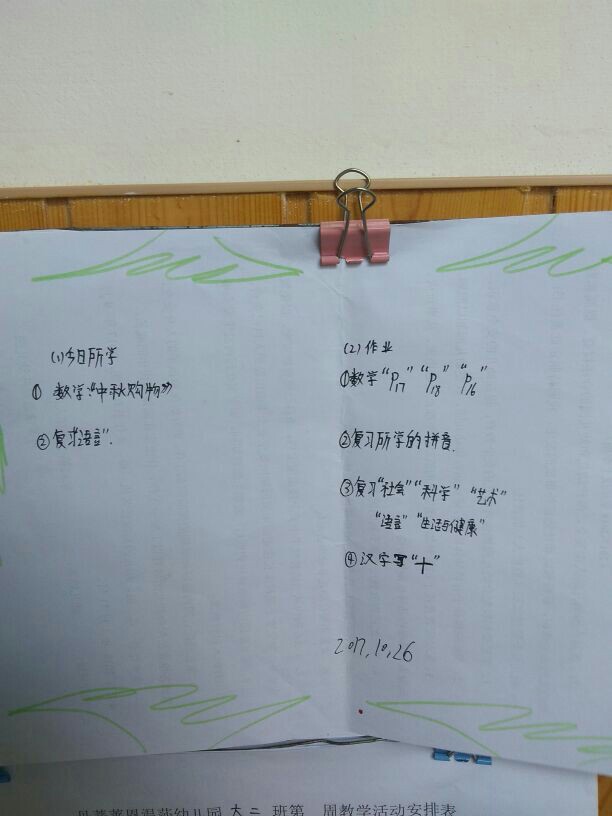 (1)今日所学
① 数学:《中秋购物》
② 复习"语言".
(2)作业
①数学"P17" "P18" "P16"
②复习所学的拼音.
③复习"社会""科学" "艺术"
"语言" "生活与健康"
④汉字写"十"
2017.10.26
幼儿园 大二 班第 周教学活动安排表